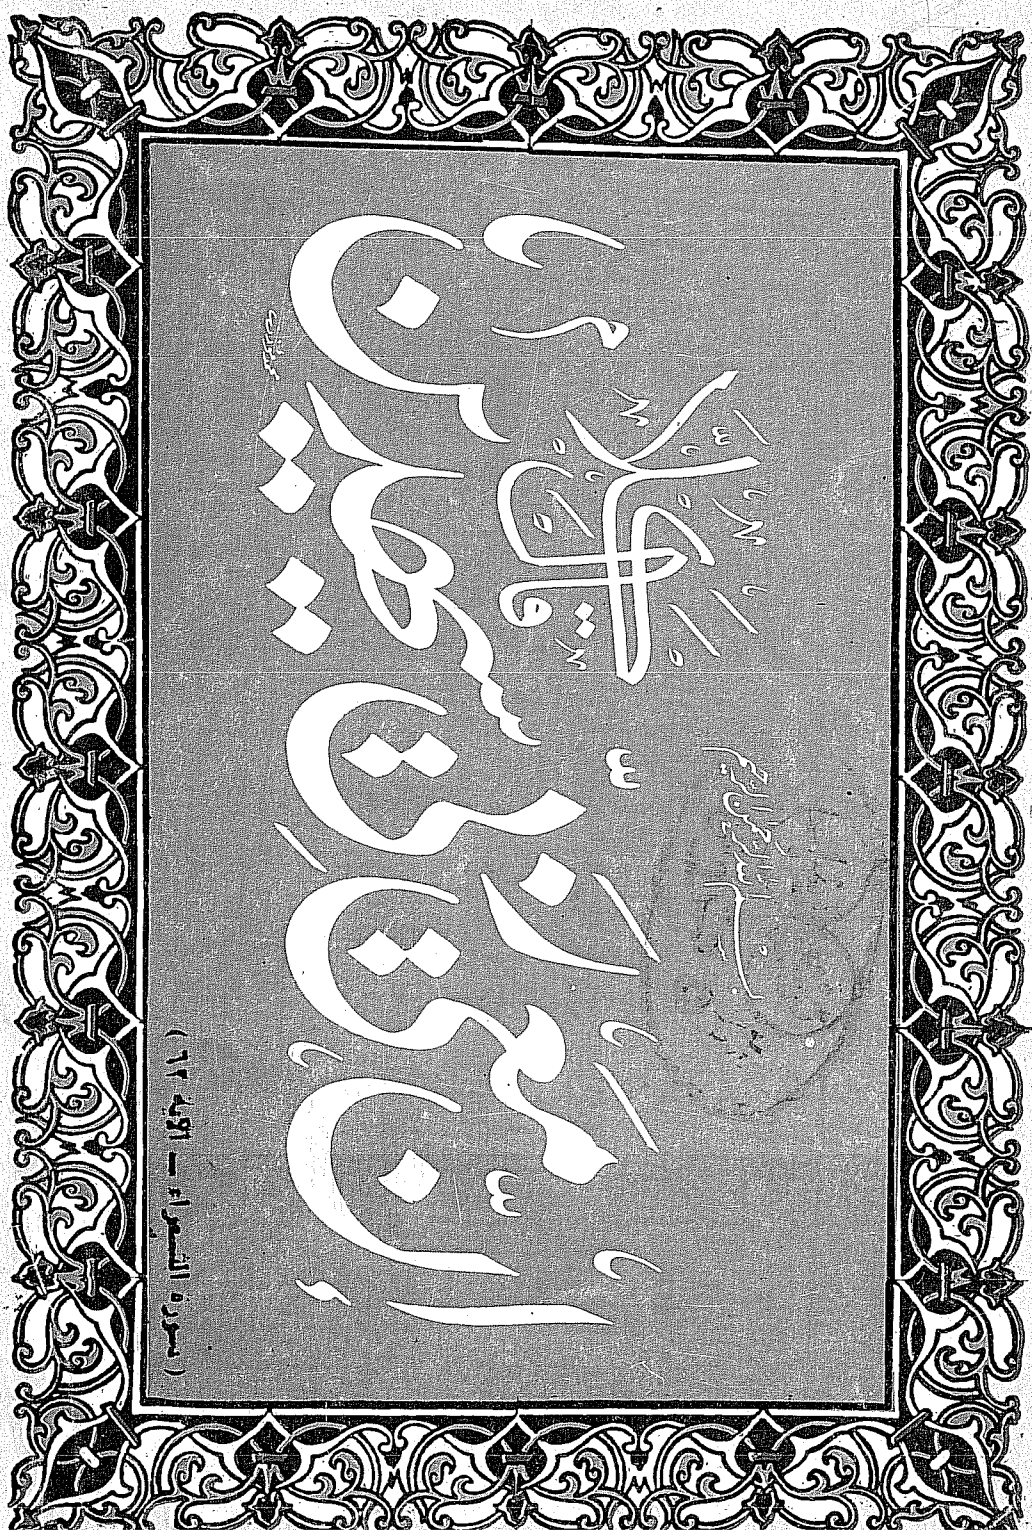 بسم الله الرحمن الرحيم
قال كلا
إن معي ربي سيهدين
( سورة الشعراء — آية ٦٢ )